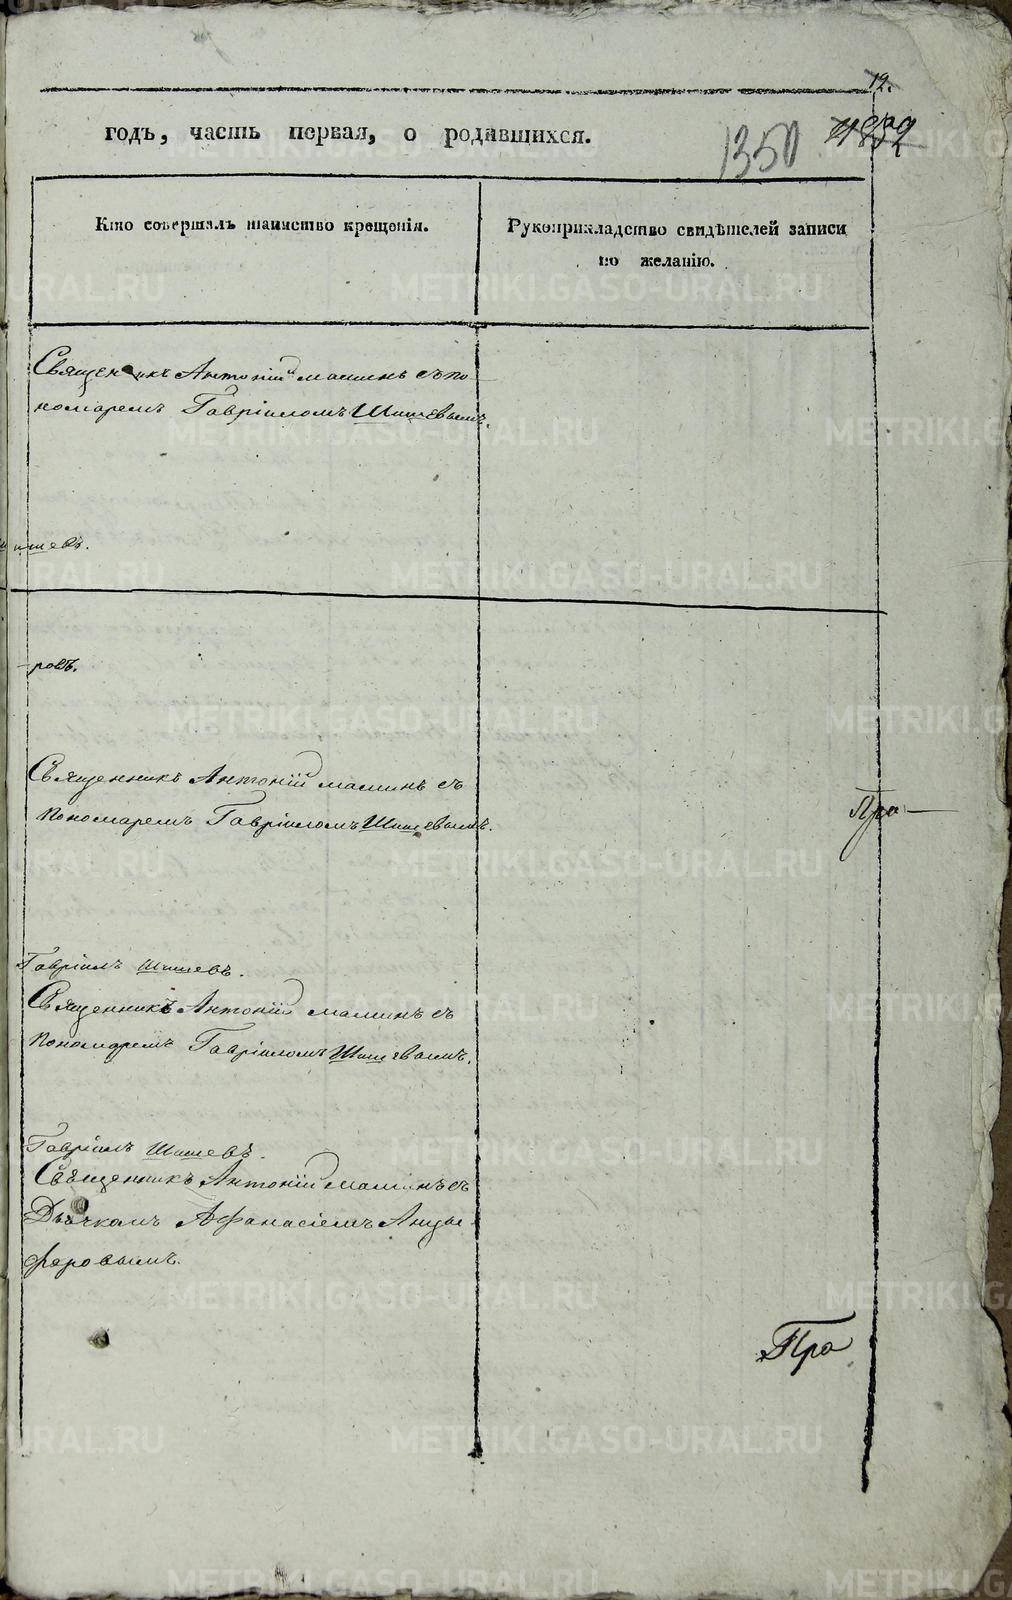 12.
годъ, часть первая, о родившихся.
1350
Кто совершалъ таинство крещенія.
Рукоприкладство свидѣтелей записи
по желанію.
Священникъ Антоній Маминъ съ по-
номаремъ Гавріиломъ Шишевымъ.
шишевъ.
-ровъ.
Священникъ Антоній Маминъ съ
Пономаремъ Гавріиломъ Шишевымъ.
Про-
Гавріилъ Шишевъ.
Священникъ Антоній Маминъ съ
Пономаремъ Гавріиломъ Шишевымъ.
Гавріилъ Шишевъ.
Священникъ Антоній Маминъ съ
Дьячкомъ Афанасіемъ Анцы-
феровымъ.
Про
METRIKI.GASO-URAL.RU